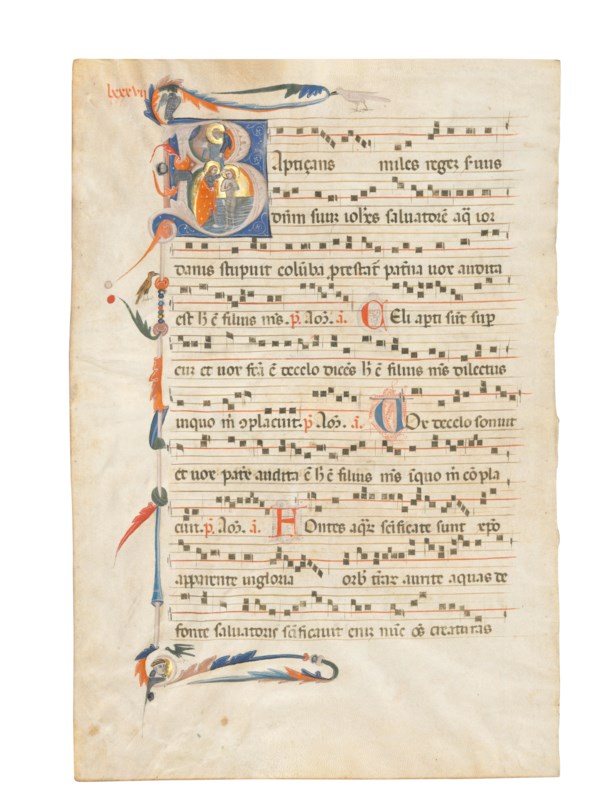 lxxxvii
Baptiçans miles regez suus
dnm suuz iohes saluatorē aq̄ ior
danis stupuit colūba prestat̄ pat̄na uox audita
est h ē filius ms. p. a.
Celi apti sūt sup
eum et uox ē de celo dicēs h ē filius ms dilectus
inquo m 9placuit. p. a.
De celo sonuit
et uox patr̄ audita ē h ē filius ms īquo m cōpla
cuit. p. a.
Fontes aqr̄ scificate sunt xp̄o
apparente ingloria orb̄ aurite aquas de
fonte saluatoris scificauit enim nūc creaturas